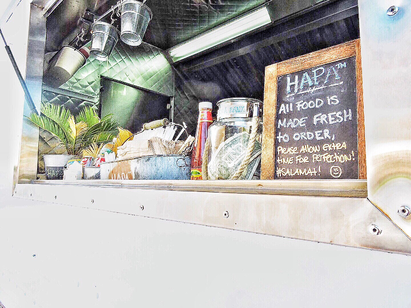 HAPA™
All FOOD iS
MADE FRESH
to ORDER,
PLEASE Allow EXTRA
tiME FOR PERFECTiON!
#SALAMAt!